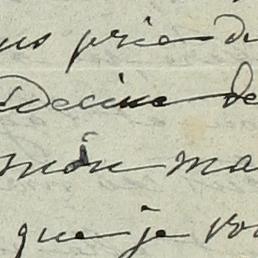 ous prie de
édecine de
mon ma
que je vou